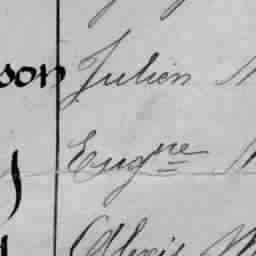 son Julien
Eugne
Alexis